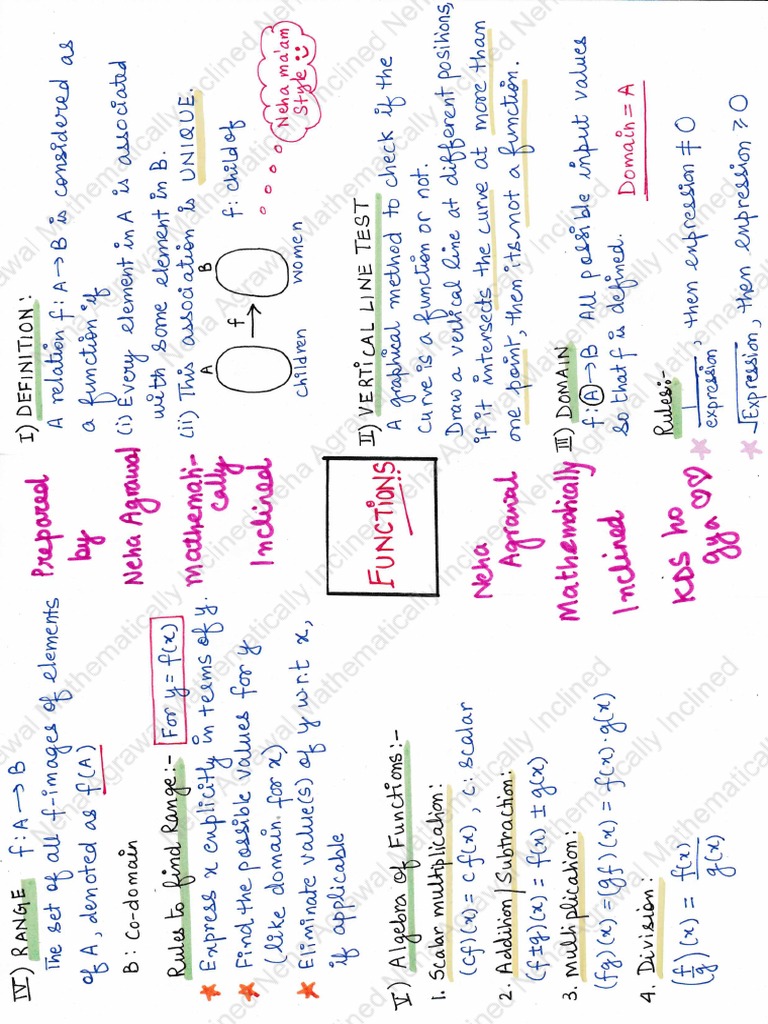 FUNCTIONS!!
Prepared
by
Neha Agrawal
Mathemati-
cally
Inclined
Neha
Agrawal
Mathematically
Inclined
KDS ho
gya ♡♡
I) DEFINITION:
A relation f: A→B is considered as
a function if
(i) Every element in A is associated
with some element in B.
(ii) This association is UNIQUE.
A f B
children women
f: child of
Neha ma'am
Style
II) VERTICAL LINE TEST
A graphical method to check if the
curve is a function or not.
Draw a vertical line at different positions,
if it intersects the curve at more than
one point, then its not a function.
III) DOMAIN
f: A→B All possible input values
so that f is defined. Domain = A
Rules:-
1/expression, then expression ≠ 0
√Expression, then expression ≥ 0
IV) RANGE f: A→B
The set of all f-images of elements
of A, denoted as f(A)
B: Co-domain
Rules to find Range:- For y = f(x)
★ Express x explicitly in terms of y.
★ Find the possible values for y
(like domain for x)
★ Eliminate value(s) of y w.r.t x,
if applicable
V) Algebra of Functions:-
1. Scalar multiplication:
(cf)(x) = cf(x), c: scalar
2. Addition/Subtraction:
(f±g)(x) = f(x) ± g(x)
3. Multiplication:
(fg)(x) = (gf)(x) = f(x)·g(x)
4. Division:
(f/g)(x) = f(x)/g(x)
Neha Agrawal Mathematically Inclined